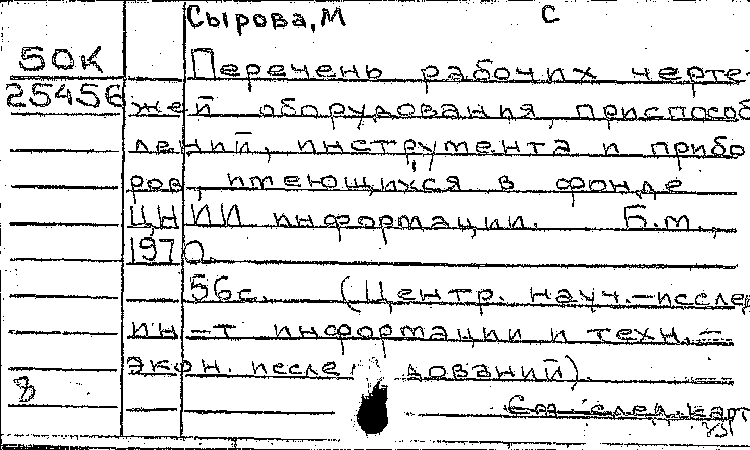 Сырова, М С
50К Перечень рабочих черте-
25456 жей оборудования, приспособ
лений, инструмента и прибо
ров, имеющихся в фонде
ЦНИИ информации. Б.м.,
1970.
56с. (Центр. науч.-исслед
ин-т информации и техн.-
экон. исследований).
8
См. след. карт